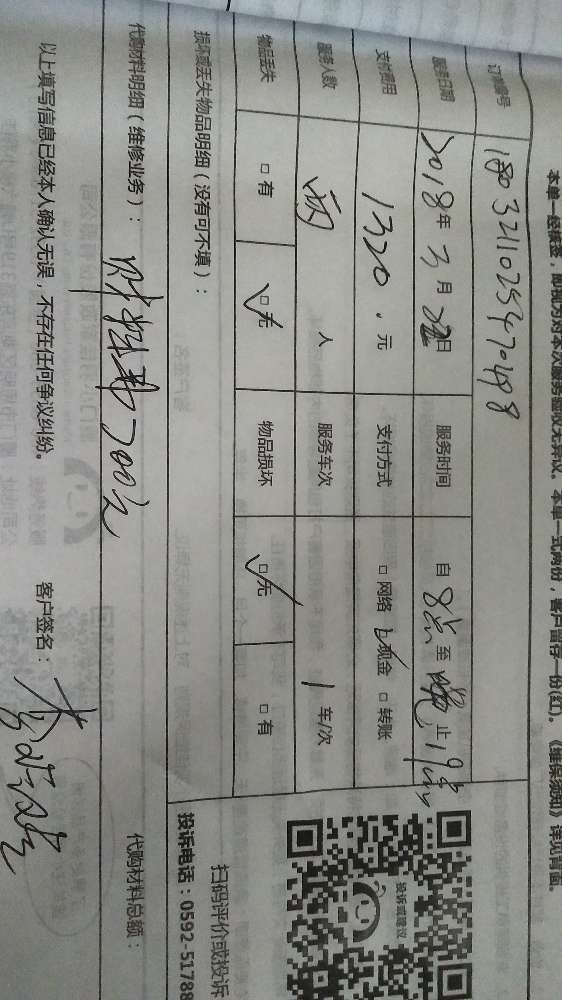 本单一经保签，即视为对本次服务验收无异议。本单一式两份，客户留存一份(红)。《维保须知》详见背面。
订单编号 1803211025470498
服务日期 2018年 3月 日 服务时间 自 8点 至 晚 止 19点
支付费用 1320.元 支付方式 □ 网络 ☑现金 □ 转账
服务人数 两 人 服务车次 1 车/次
物品丢失 □ 有 ☑无 物品损坏 ☑无 □ 有
投诉或建议
扫码评价或投诉
投诉电话：0592-51788
损坏或丢失物品明细（没有可不填）：
代购材料明细（维修业务）： 材料费700元 代购材料总额：
以上填写信息已经本人确认无误，不存在任何争议纠纷。 客户签名：